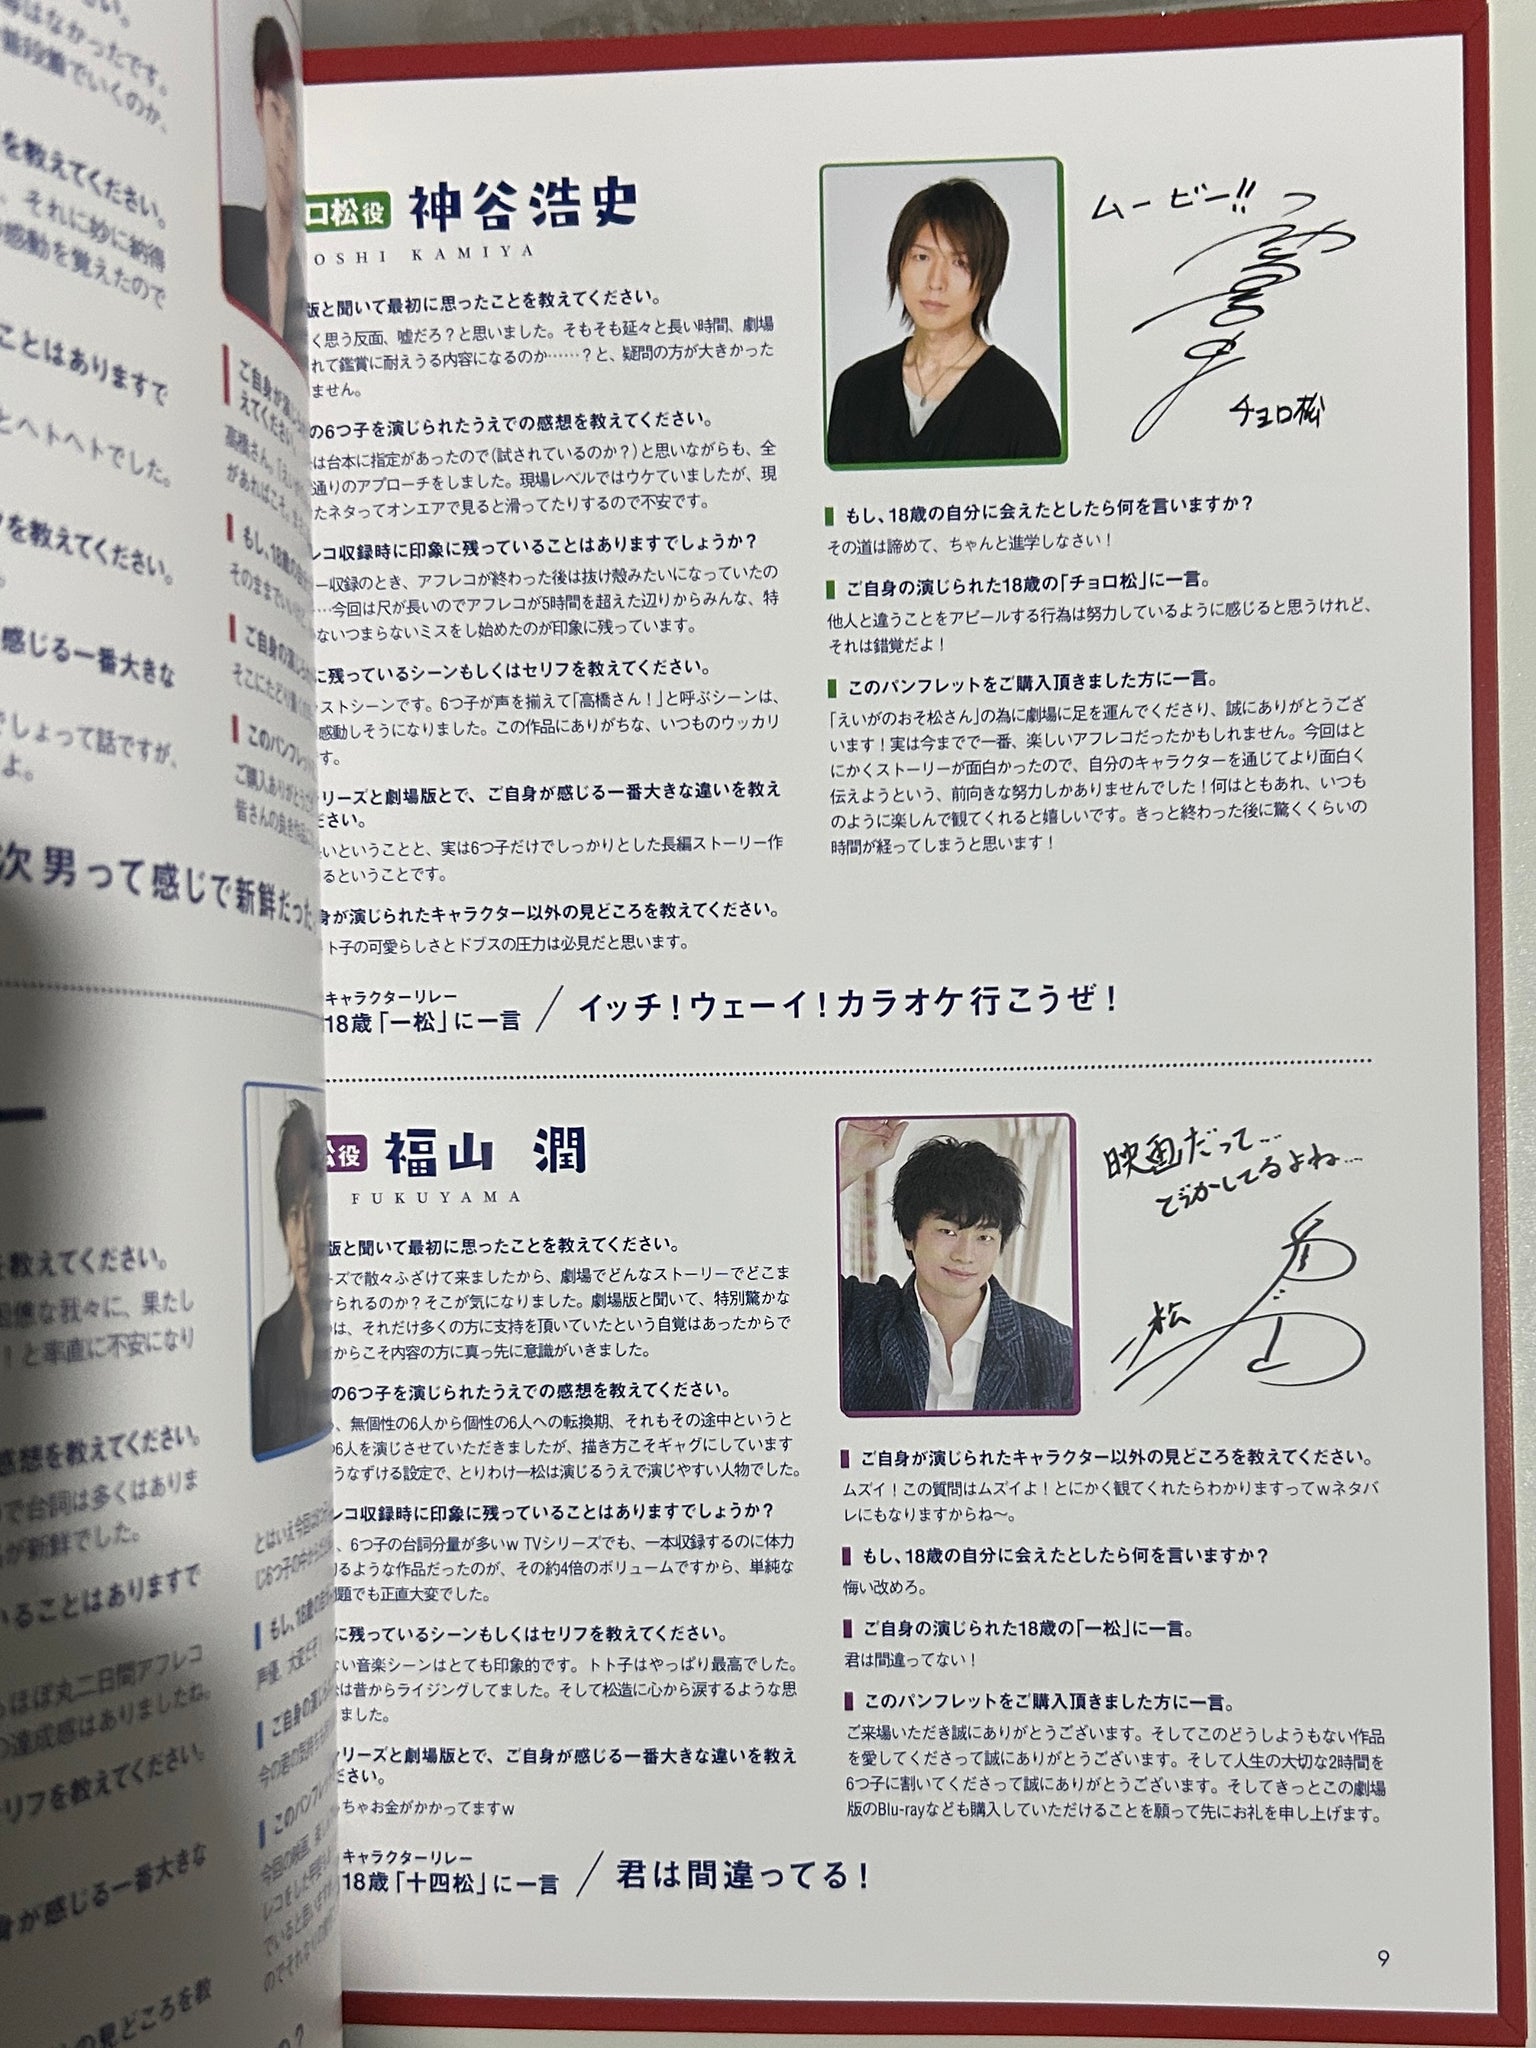 はなかったです。
普段着でいくのか、
を教えてください。
、それに妙に納得
感動を覚えたので
ことはありますで
とヘトヘトでした。
を教えてください。
感じる一番大きな
でしょって話ですが、
よ。
次男って感じで新鮮だった
ご自身が演じ
えてください
高橋さん。「え
があればこそ。
もし、18歳の
そのままで
ご自身の演じ
そこにたどり
このパンフレ
ご購入ありがとう
皆さんの良き
教えてください。
な我々に、果たし
！と率直に不安になり
感想を教えてください。
で台詞は多くはありま
が新鮮でした。
いることはありますで
ほぼ丸二日間アフレコ
の達成感はありましたね。
リフを教えてください。
身が感じる一番大きな
の見どころを教
の？
とはいえ今回は
じ6つ子の中
もし、18歳の
声優、大変だぞ
ご自身の演じ
今の君の気持ち
このパンフレッ
今回の映画、楽し
レコをした
でいると思います
のでそれな
ロ松役 神谷浩史
OSHI KAMIYA
版と聞いて最初に思ったことを教えてください。
く思う反面、嘘だろ？と思いました。そもそも延々と長い時間、劇場
れて鑑賞に耐えうる内容になるのか……？と、疑問の方が大きかった
ません。
の6つ子を演じられたうえでの感想を教えてください。
は台本に指定があったので(試されているのか？)と思いながらも、全
通りのアプローチをしました。現場レベルではウケていましたが、現
たネタってオンエアで見ると滑ってたりするので不安です。
レコ収録時に印象に残っていることはありますでしょうか？
ー収録のとき、アフレコが終わった後は抜け殻みたいになっていたの
…今回は尺が長いのでアフレコが5時間を超えた辺りからみんな、特
ないつまらないミスをし始めたのが印象に残っています。
に残っているシーンもしくはセリフを教えてください。
ラストシーンです。6つ子が声を揃えて「高橋さん！」と呼ぶシーンは、
感動しそうになりました。この作品にありがちな、いつものウッカリ
す。
リーズと劇場版とで、ご自身が感じる一番大きな違いを教え
ださい。
いということと、実は6つ子だけでしっかりとした長編ストーリー作
るということです。
身が演じられたキャラクター以外の見どころを教えてください。
ト子の可愛らしさとドブスの圧力は必見だと思います。
ムービー!!
チョロ松
もし、18歳の自分に会えたとしたら何を言いますか？
その道は諦めて、ちゃんと進学しなさい！
ご自身の演じられた18歳の「チョロ松」に一言。
他人と違うことをアピールする行為は努力しているように感じると思うけれど、
それは錯覚だよ！
このパンフレットをご購入頂きました方に一言。
「えいがのおそ松さん」の為に劇場に足を運んでくださり、誠にありがとうござ
います！実は今までで一番、楽しいアフレコだったかもしれません。今回はと
にかくストーリーが面白かったので、自分のキャラクターを通じてより面白く
伝えようという、前向きな努力しかありませんでした！何はともあれ、いつも
のように楽しんで観てくれると嬉しいです。きっと終わった後に驚くくらいの
時間が経ってしまうと思います！
キャラクターリレー
18歳「一松」に一言 ／ イッチ！ウェーイ！カラオケ行こうぜ！
松役 福山 潤
FUKUYAMA
版と聞いて最初に思ったことを教えてください。
ーズで散々ふざけて来ましたから、劇場でどんなストーリーでどこま
けられるのか？そこが気になりました。劇場版と聞いて、特別驚かな
は、それだけ多くの方に支持を頂いていたという自覚はあったからで
だからこそ内容の方に真っ先に意識がいきました。
の6つ子を演じられたうえでの感想を教えてください。
、無個性の6人から個性の6人への転換期、それもその途中というと
6人を演じさせていただきましたが、描き方こそギャグにしています
うなずける設定で、とりわけ一松は演じるうえで演じやすい人物でした。
レコ収録時に印象に残っていることはありますでしょうか？
、6つ子の台詞分量が多いw TVシリーズでも、一本収録するのに体力
るような作品だったのが、その約4倍のボリュームですから、単純な
問題でも正直大変でした。
に残っているシーンもしくはセリフを教えてください。
ない音楽シーンはとても印象的です。トト子はやっぱり最高でした。
は昔からライジングしてました。そして松造に心から涙するような思
ました。
リーズと劇場版とで、ご自身が感じる一番大きな違いを教え
ださい。
っちゃお金がかかってますw
映画だって…
でぃかしてるよね…
一松
ご自身が演じられたキャラクター以外の見どころを教えてください。
ムズイ！この質問はムズイよ！とにかく観てくれたらわかりますってwネタバ
レにもなりますからね〜。
もし、18歳の自分に会えたとしたら何を言いますか？
悔い改めろ。
ご自身の演じられた18歳の「一松」に一言。
君は間違ってない！
このパンフレットをご購入頂きました方に一言。
ご来場いただき誠にありがとうございます。そしてこのどうしようもない作品
を愛してくださって誠にありがとうございます。そして人生の大切な2時間を
6つ子に割いてくださって誠にありがとうございます。そしてきっとこの劇場
版のBlu-rayなども購入していただけることを願って先にお礼を申し上げます。
キャラクターリレー
18歳「十四松」に一言 ／ 君は間違ってる！
9